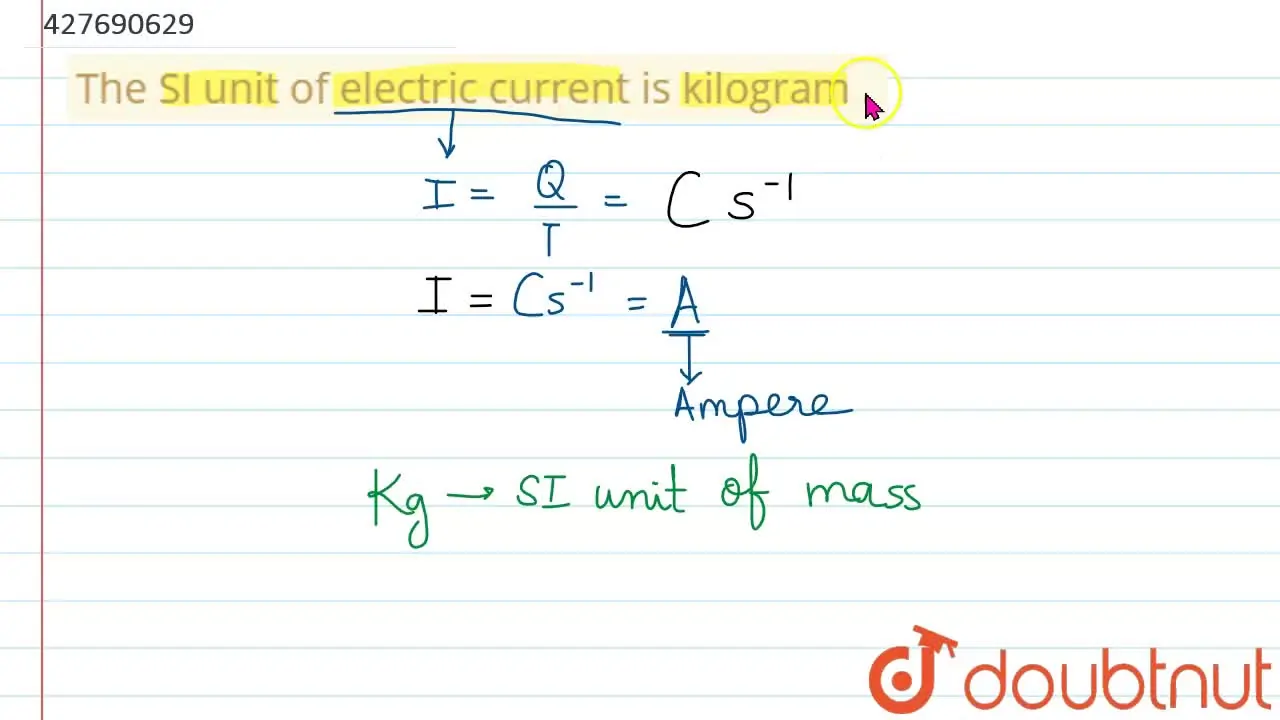 427690629
The SI unit of electric current is kilogram
I = Q/T = C s⁻¹
I = Cs⁻¹ = A
Ampere
Kg → SI unit of mass
doubtnut